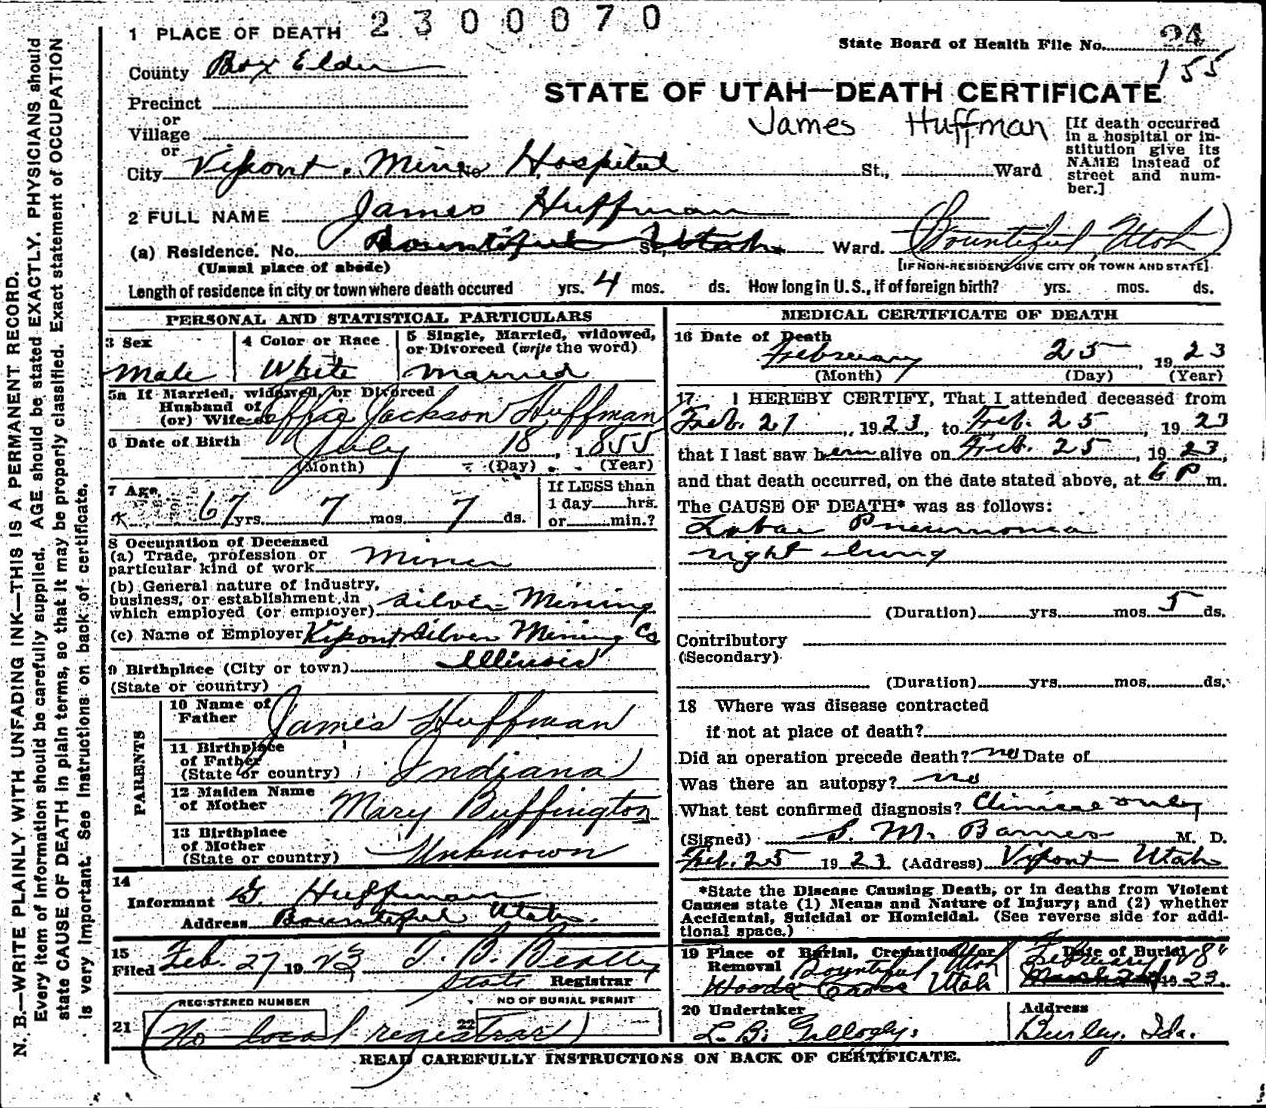 2300070
1 PLACE OF DEATH
State Board of Health File No. 24
155
County Box Elder
STATE OF UTAH—DEATH CERTIFICATE
Precinct
or
Village
or
James Huffman
[If death occurred in a hospital or institution give its NAME instead of street and number.]
City Vipont Mine No Hospital St., Ward
2 FULL NAME James Huffman
(a) Residence. No. Bountiful St., Utah Ward. (Bountiful, Utah)
(Usual place of abode) [IF NON-RESIDENT GIVE CITY OR TOWN AND STATE]
Length of residence in city or town where death occured yrs. 4 mos. ds. How long in U.S., if of foreign birth? yrs. mos. ds.
PERSONAL AND STATISTICAL PARTICULARS
3 Sex
Male
4 Color or Race
White
5 Single, Married, widowed, or Divorced (write the word)
Married
5a If Married, widowed, or Divorced
Husband of
(or) Wife of Effie Jackson Huffman
6 Date of Birth July 18, 1855
(Month) (Day) (Year)
7 Age 67 yrs. 7 mos. 7 ds.
If LESS than
1 day hrs.
or min.?
8 Occupation of Deceased
(a) Trade, profession or
particular kind of work Miner
(b) General nature of industry,
business, or establishment in
which employed (or employer) Silver Mining
(c) Name of Employer Vipont Silver Mining Co
9 Birthplace (City or town) Illinois
(State or country)
PARENTS
10 Name of
Father James Huffman
11 Birthplace
of Father
(State or country) Indiana
12 Maiden Name
of Mother Mary Buffington
13 Birthplace
of Mother
(State or country) Unknown
14
Informant G Huffman
Address Bountiful Utah.
15
Filed Feb. 27 1923 T. B. Beatty
State Registrar
REGISTERED NUMBER NO OF BURIAL PERMIT
21 (No local registrar) 22
MEDICAL CERTIFICATE OF DEATH
16 Date of Death
February 25 1923
(Month) (Day) (Year)
17 I HEREBY CERTIFY, That I attended deceased from
Feb. 21, 1923, to Feb. 25 1923
that I last saw him alive on Feb. 25, 1923,
and that death occurred, on the date stated above, at 6 P m.
The CAUSE OF DEATH* was as follows:
Lobar Pneumonia
right lung
(Duration) yrs. mos. 5 ds.
Contributory
(Secondary)
(Duration) yrs. mos. ds.
18 Where was disease contracted
if not at place of death?
Did an operation precede death? no Date of
Was there an autopsy? no
What test confirmed diagnosis? Clinical only
(Signed) S. M. Barnes M. D.
Feb. 25 1923 (Address) Vipont Utah
*State the Disease Causing Death, or in deaths from Violent
Causes state (1) Means and Nature of Injury; and (2) whether
Accidental, Suicidal or Homicidal. (See reverse side for additional space.)
19 Place of Burial, Cremation or
Removal Bountiful Utah
Woods Cross Utah
Date of Burial
February 28"
1923.
20 Undertaker
L. B. Gillogly.
Address
Burley. Ida.
READ CAREFULLY INSTRUCTIONS ON BACK OF CERTIFICATE.
N. B.—WRITE PLAINLY WITH UNFADING INK—THIS IS A PERMANENT RECORD.
Every item of information should be carefully supplied. AGE should be stated EXACTLY. PHYSICIANS should
state CAUSE OF DEATH in plain terms, so that it may be properly classified. Exact statement of OCCUPATION
is very important. See instructions on back of certificate.